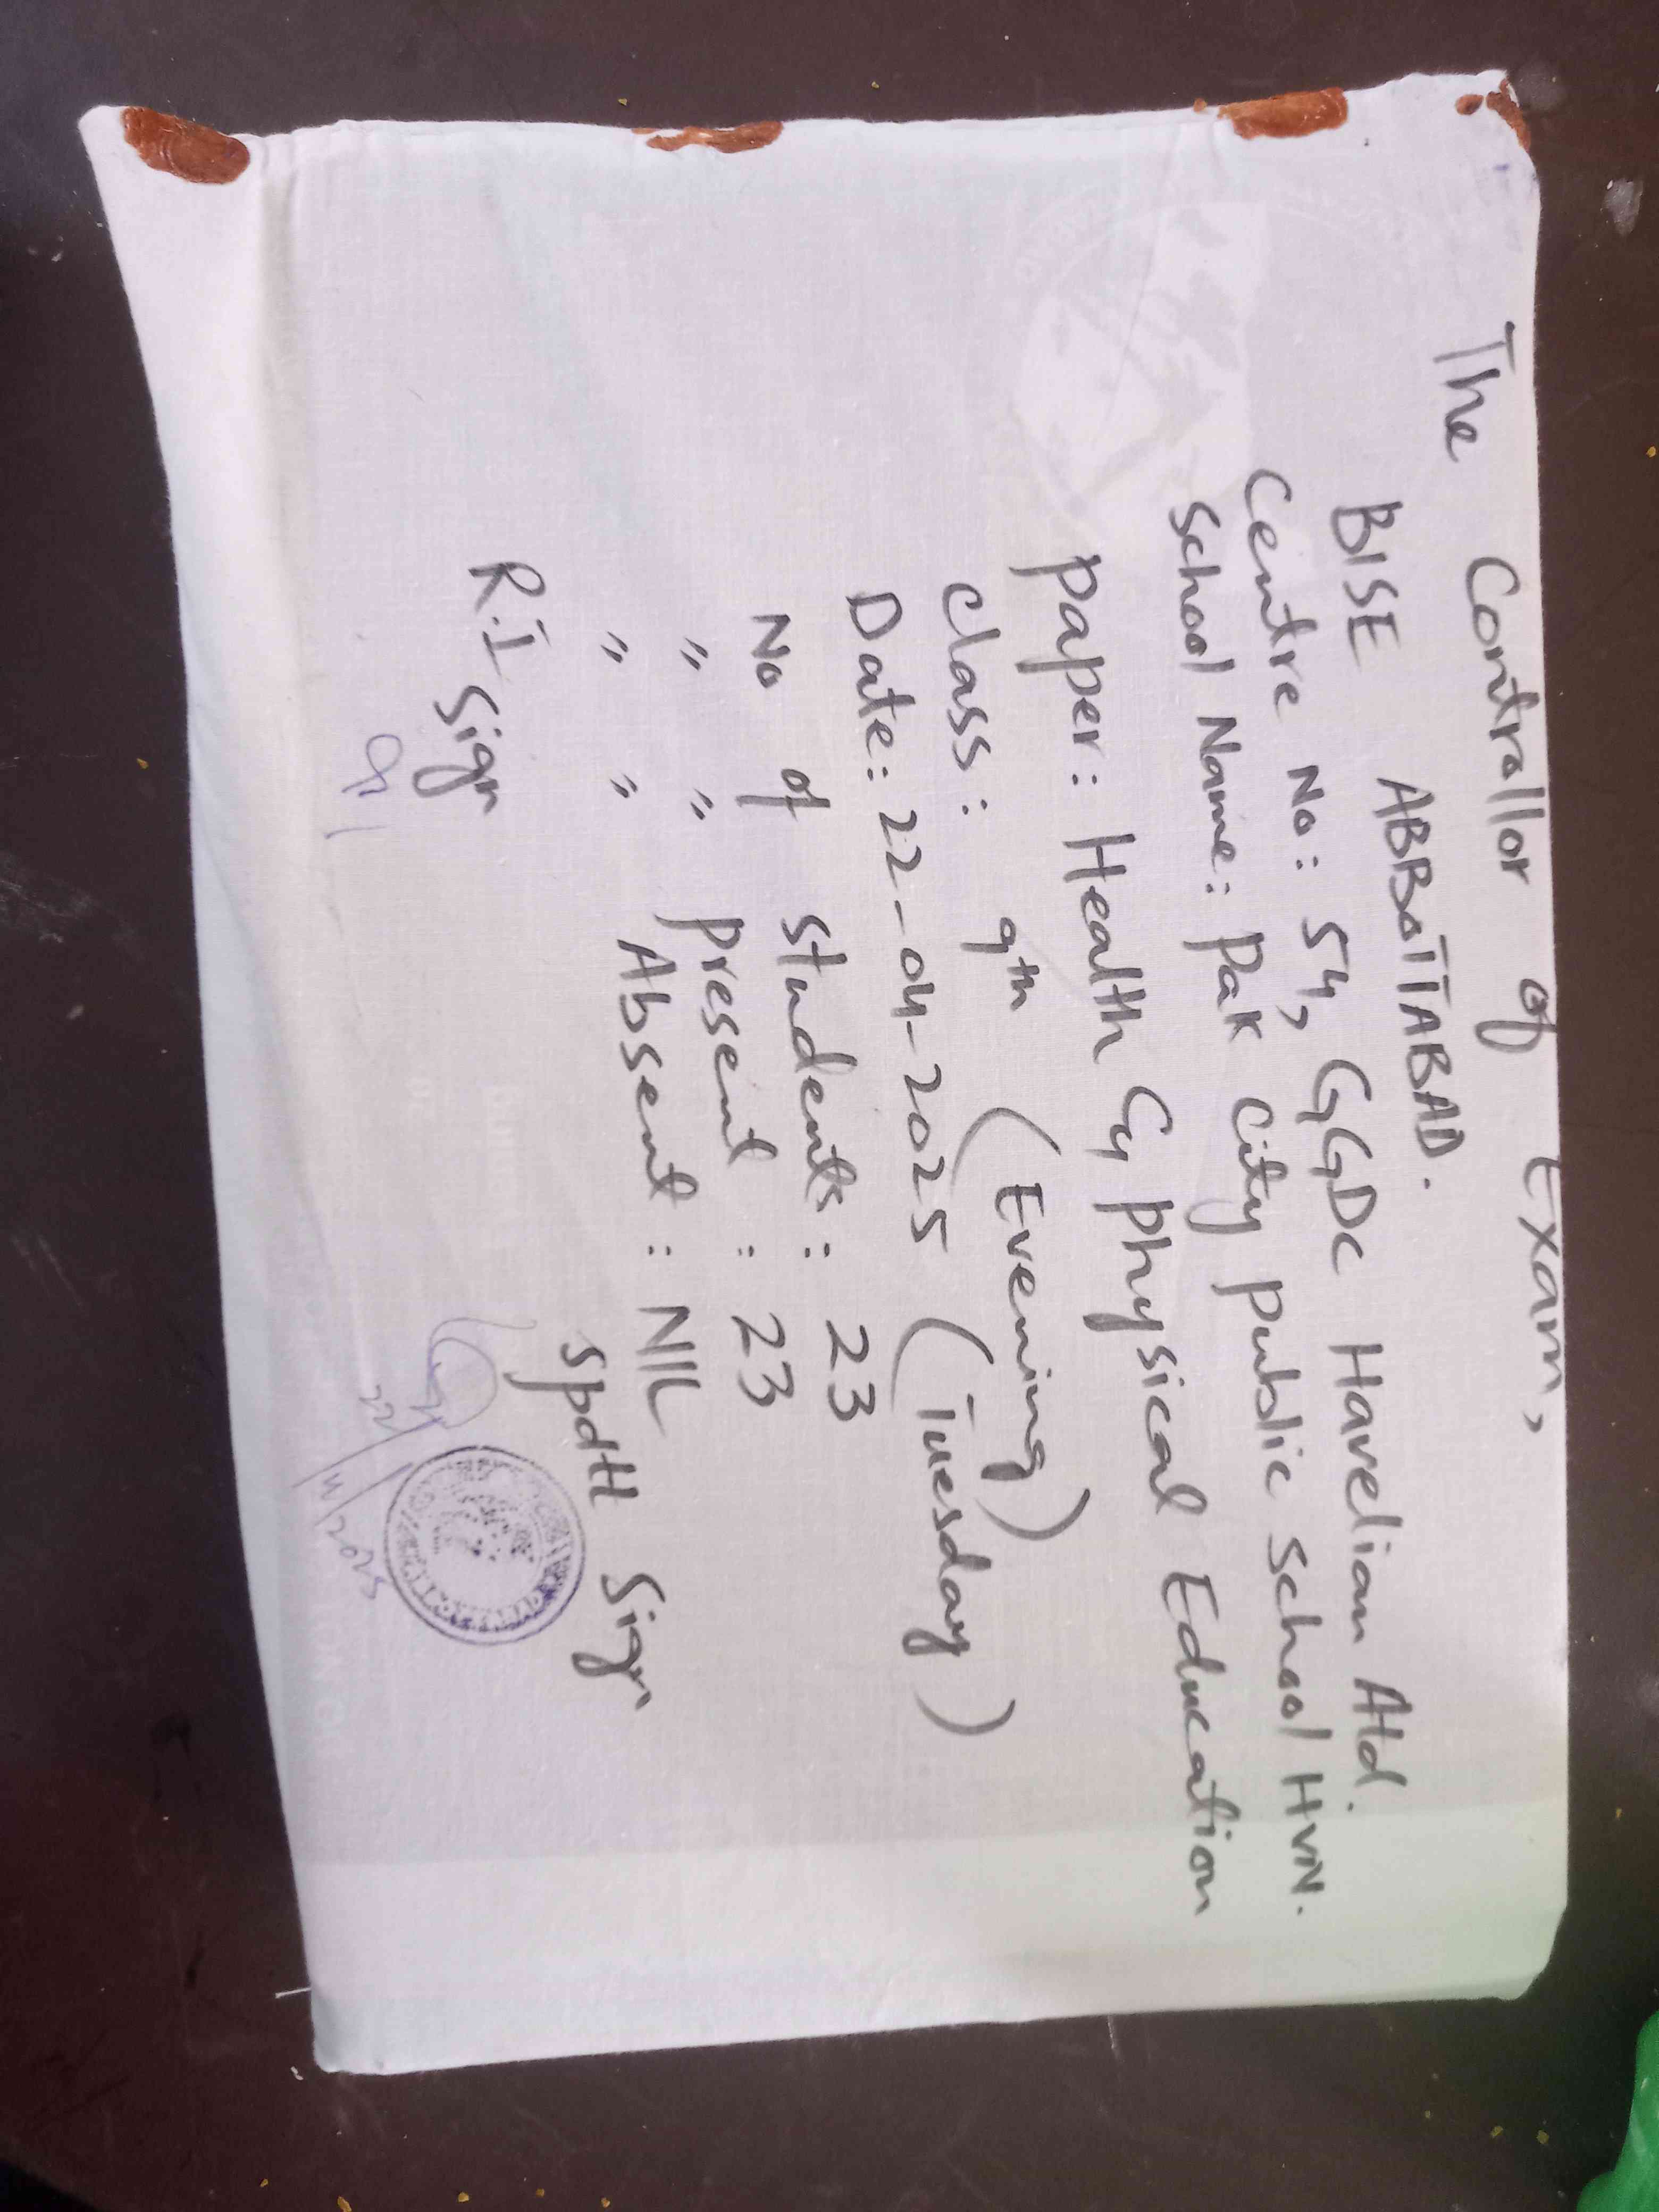 The Controllor of Exam,
BISE ABBOTTABAD.
Centre No: 54, GGDC Havelian Atd.
School Name: Pak City Public School HVN.
Paper: Health & Physical Education
Class: 9th (Evening)
Date: 22-04-2025 (Tuesday)
No of Students: 23
" " Present : 23
" " Absent : NIL
R.I Sign
Spdtt Sign
22/4/2025